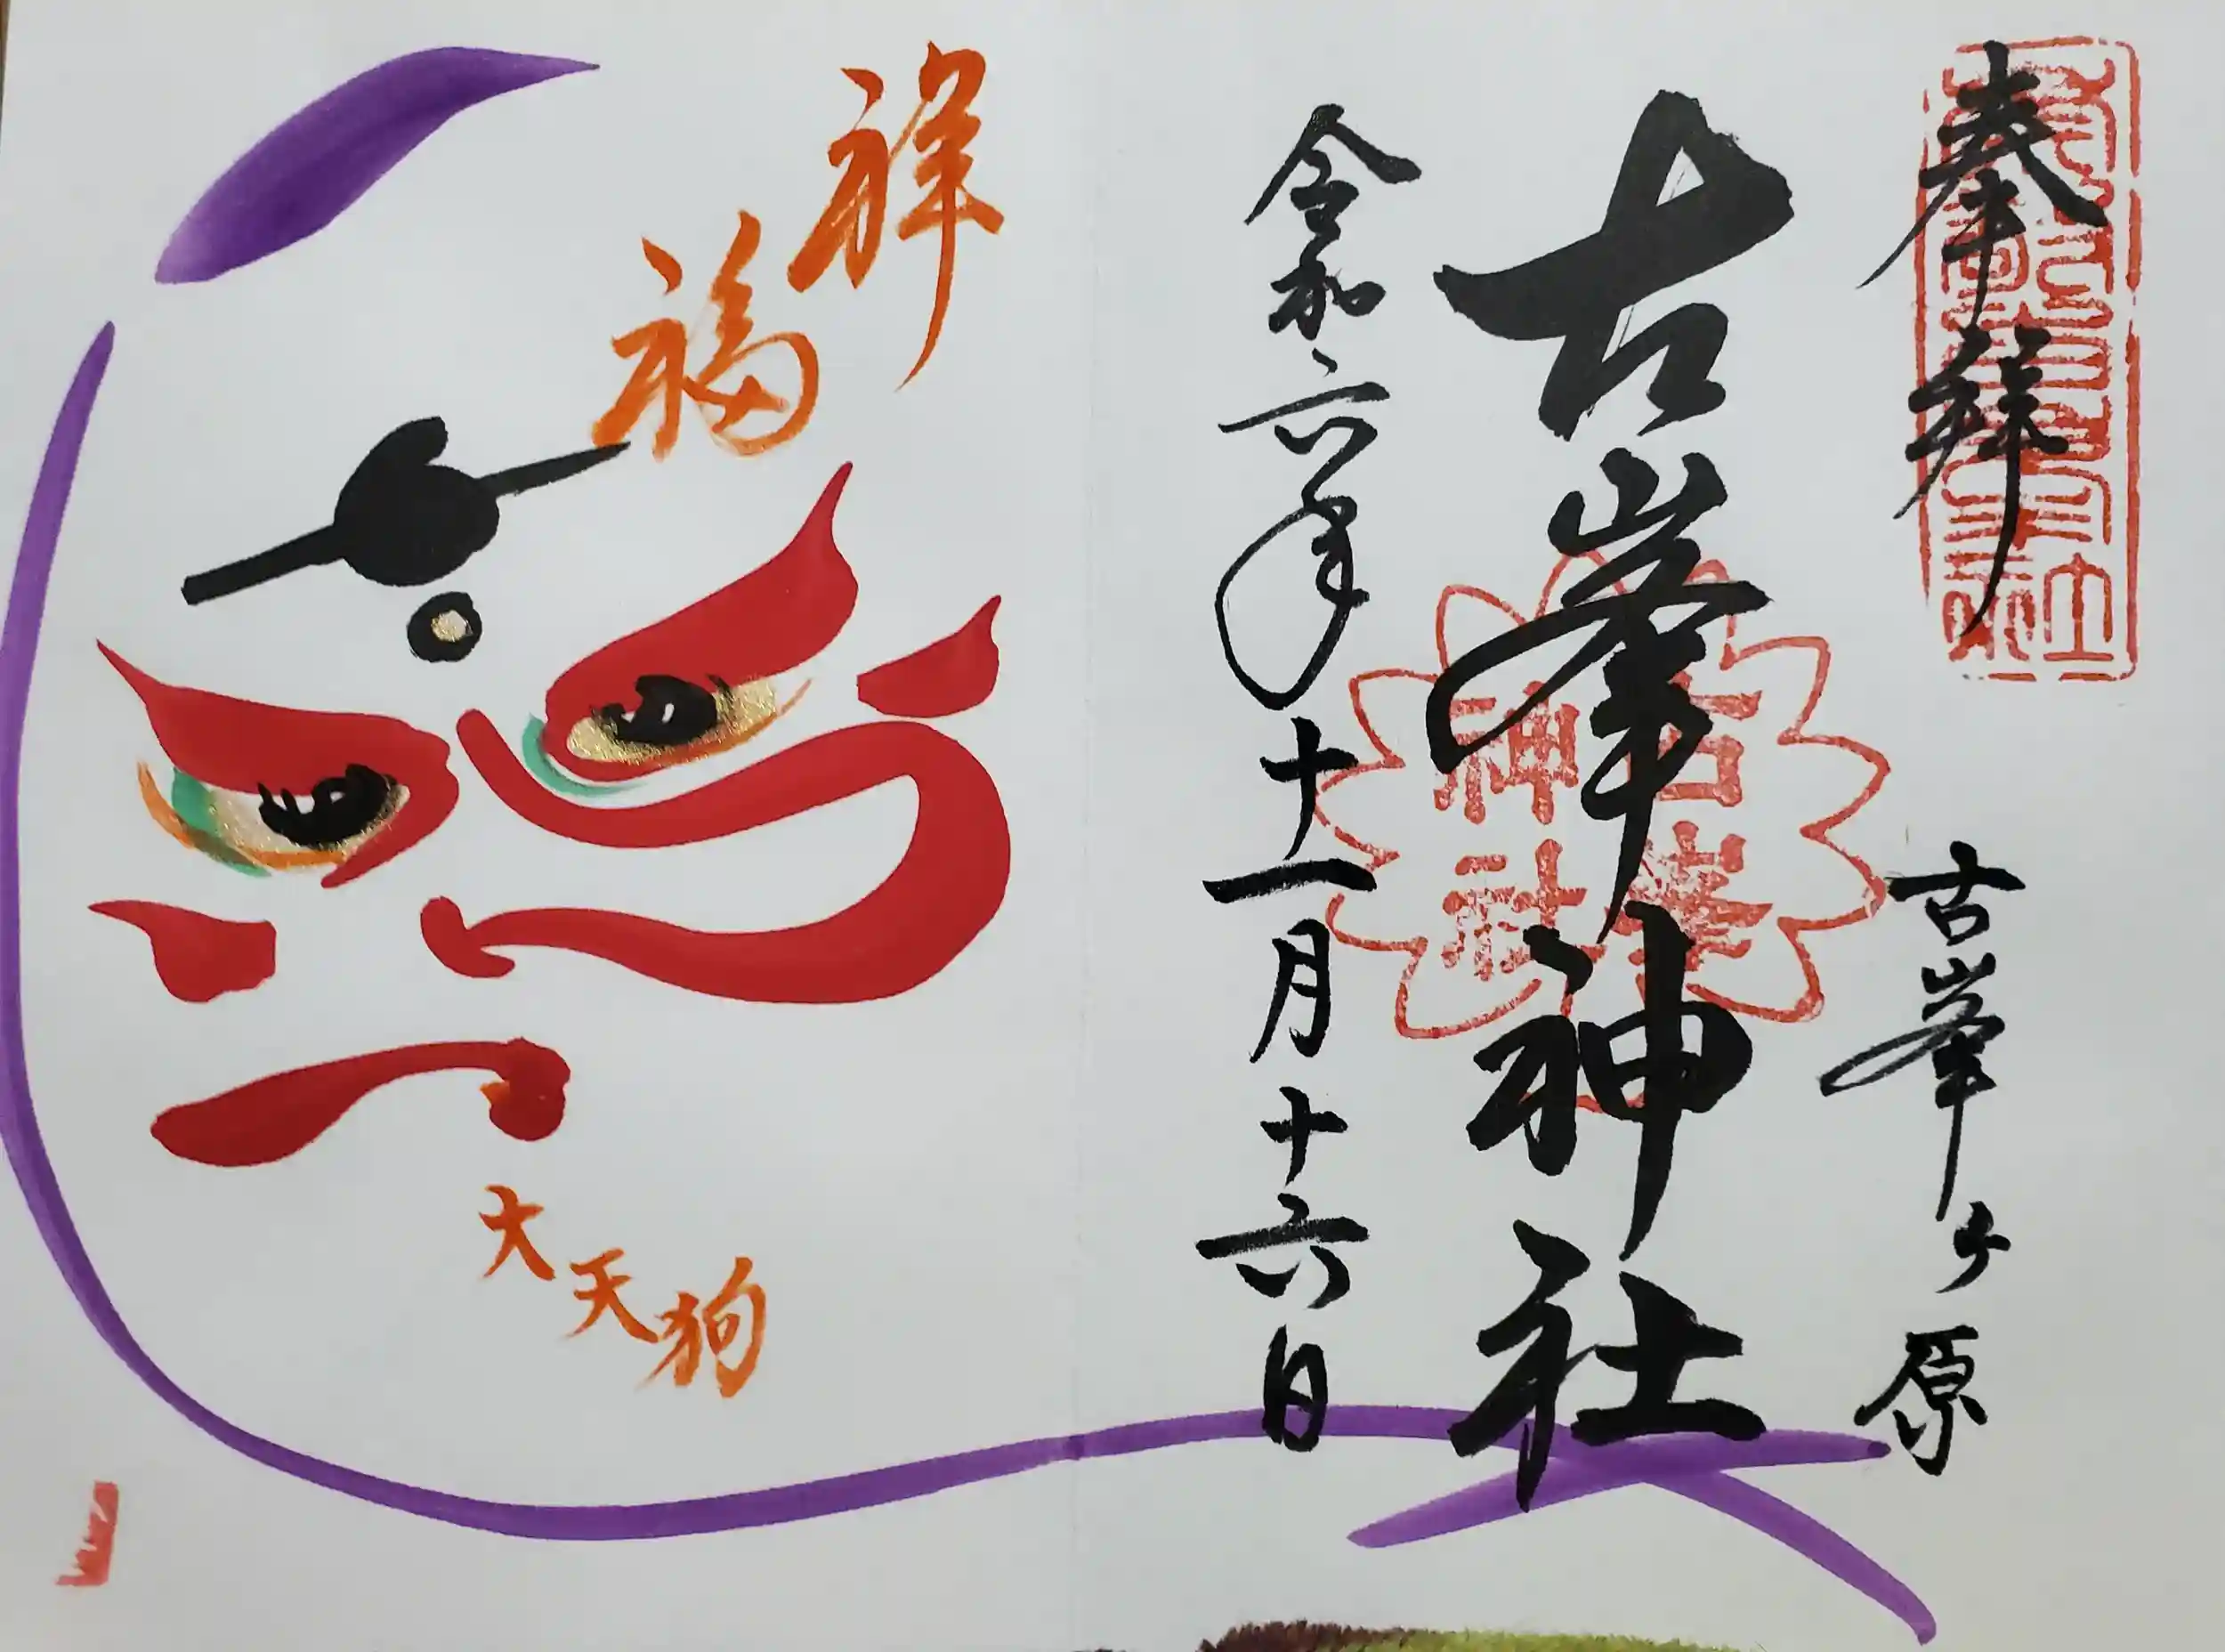 奉拝
古峯ヶ原
古峯神社
古峯
神社
令和六年十一月十六日
祥福
大天狗